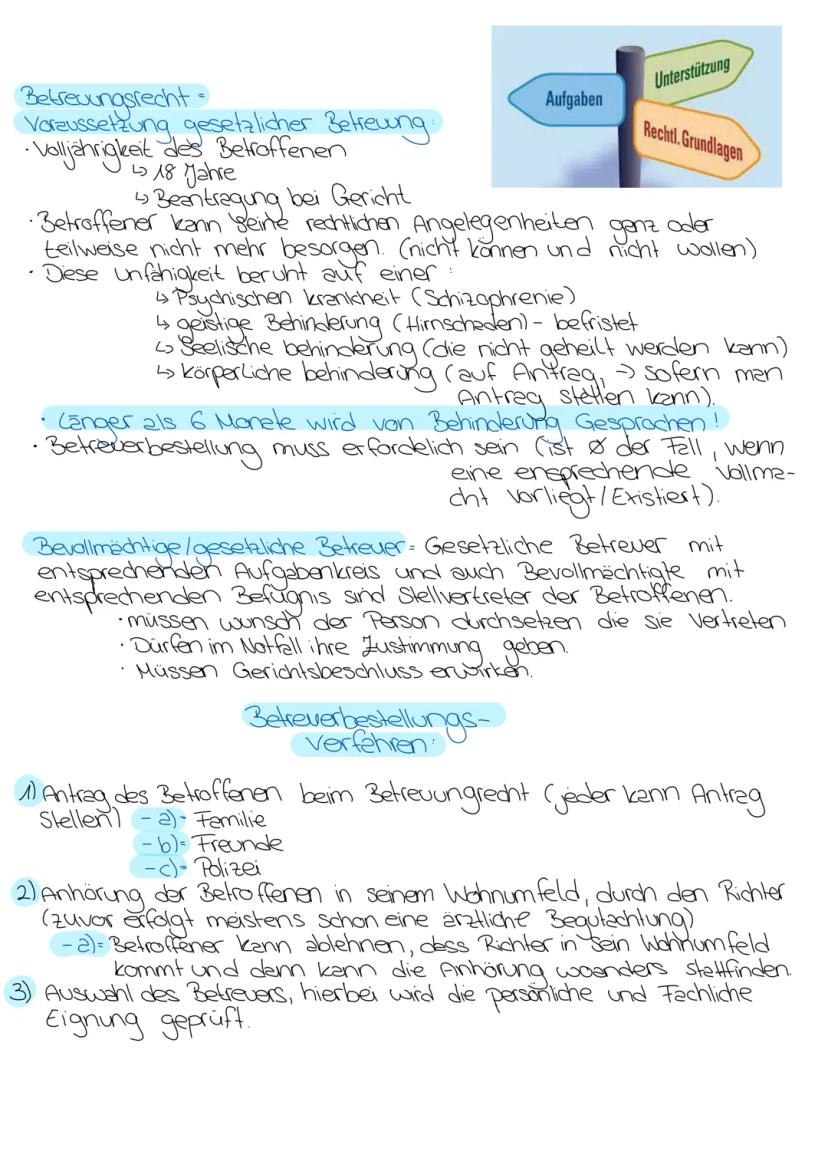 Aufgaben
Unterstützung
Rechtl. Grundlagen
Betreuungsrecht =
Voraussetzung gesetzlicher Betreuung:
· Volljährigkeit des Betroffenen
↳ 18 Jahre
↳ Beantragung bei Gericht
· Betroffener kann seine rechtlichen Angelegenheiten ganz oder
teilweise nicht mehr besorgen. (nicht können und nicht wollen)
· Diese Unfähigkeit beruht auf einer :
↳ Psychischen krankheit (Schizophrenie)
↳ geistige Behinderung (Hirnschaden) - befristet
↳ Seelische behinderung (die nicht geheilt werden kann)
↳ körperliche behinderung (auf Antrag, → sofern man
Antrag stellen kann).
· Länger als 6 Monate wird von Behinderung Gesprochen!
· Betreuerbestellung muss erfordelich sein (ist Ø der Fall, wenn
eine ensprechende Vollma-
cht vorliegt/Existiert).
Bevollmächtige/gesetzliche Betreuer = Gesetzliche Betreuer mit
entsprechenden Aufgabenkreis und auch Bevollmächtigte mit
entsprechenden Befugnis sind Stellvertreter der Betroffenen.
· müssen wunsch der Person durchsetzen die sie vertreten
· Dürfen im Notfall ihre Zustimmung geben.
· Müssen Gerichtsbeschluss erwirken.
Betreuerbestellungs-
verfahren:
1) Antrag des Betroffenen beim Betreuungrecht (jeder kann Antrag
Stellen) - a)= Familie
- b)= Freunde
- c)= Polizei
2) Anhörung der Betroffenen in seinem Wohnumfeld, durch den Richter
(zuvor erfolgt meistens schon eine ärztliche Begutachtung)
- a)= Betroffener kann ablehnen, dass Richter in sein Wohnumfeld
kommt und dann kann die Anhörung woanders stattfinden.
3) Auswahl des Betreuers, hierbei wird die persönliche und Fachliche
Eignung geprüft.